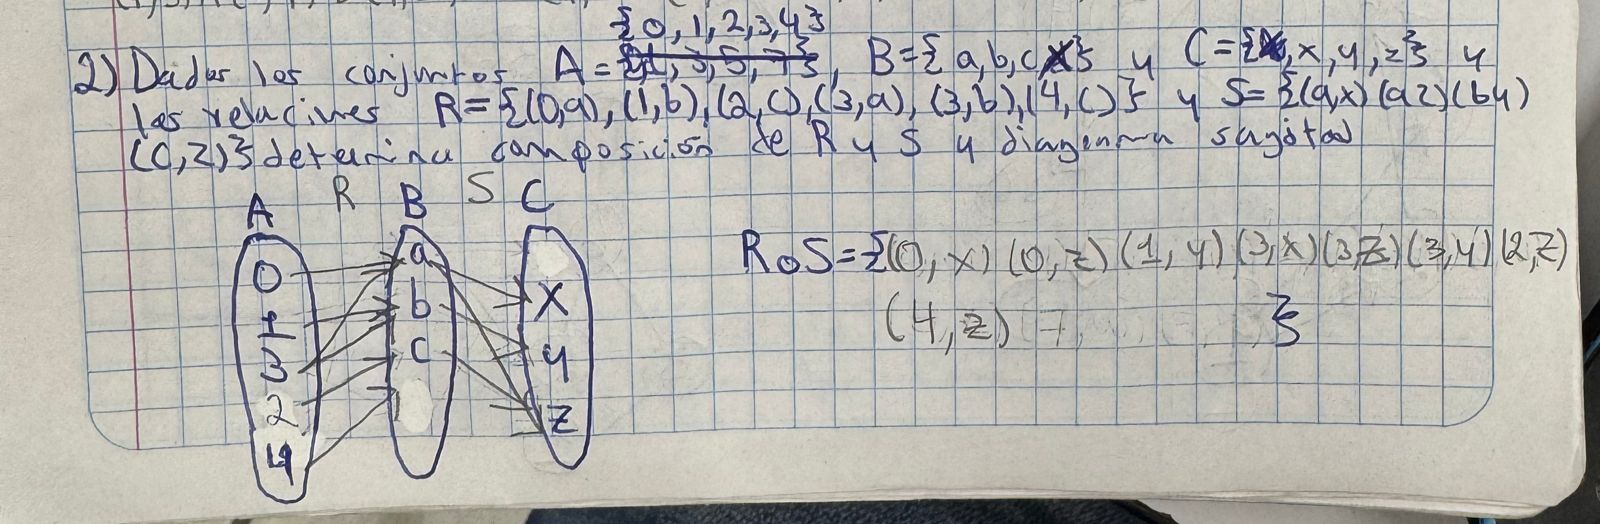 {0,1,2,3,4}
2) Dados los conjuntos A = {1,3,5,7}, B={a,b,c} y C={x,y,z} y
las relaciones R={(0,a),(1,b),(2,c),(3,a),(3,b),(4,c)} y S={(a,x)(az)(by)
(c,z)} determina composición de R y S y diagrama sagital
A R B S C
0 a
1 b x
3 c y
2 z
4
RoS={(0,x) (0,z) (1,y) (3,x)(3,z)(3,y)(2,z)
(4,z) }